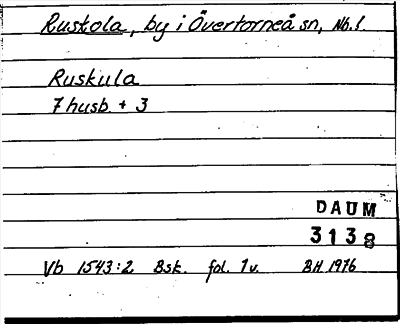 Ruskola, by i Övertorneå sn, Nb.l.
Ruskula
7 husb. + 3
DAUM
3138
Vb 1543:2 Bsk. fol. 1v. BH 1976